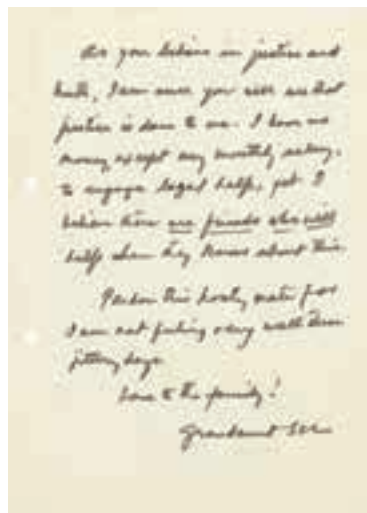 As you believe in justice and
truth, I am sure you will see that
justice is done to me. I have no
money except my monthly salary,
to engage legal help, yet I
believe there are friends who will
help when they know about this.
Pardon this hasty note for
I am not feeling very well these
jittery days.
Love to the family!